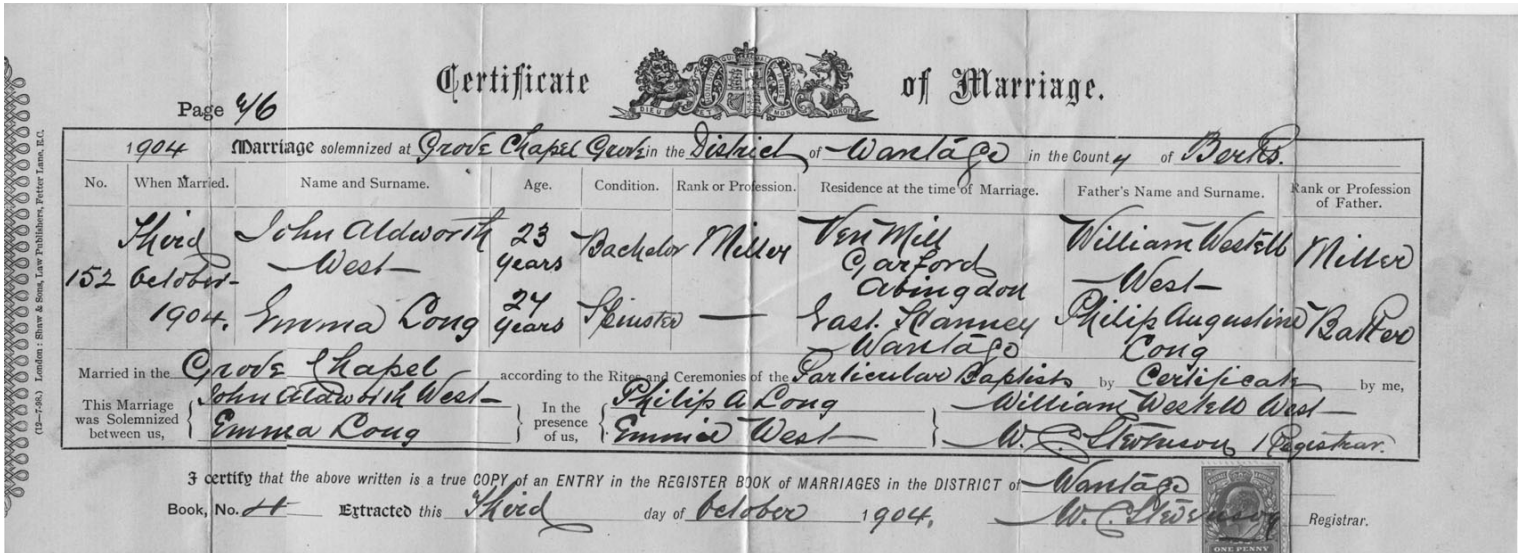 Certificate of Marriage.
Page 76
1904 Marriage solemnized at Grove Chapel Grove in the District of Wantage in the County of Berks.
No. When Married. Name and Surname. Age. Condition. Rank or Profession. Residence at the time of Marriage. Father's Name and Surname. Rank or Profession of Father.
152 Third October 1904. John Aldworth West 23 years Bachelor Miller Ven Mill Garford Abingdon William Westell West Miller
Emma Long 24 years Spinster — East Hanney Wantage Philip Augustine Long Baker
Married in the Grove Chapel according to the Rites and Ceremonies of the Particular Baptists by Certificate by me,
This Marriage was Solemnized between us, John Aldworth West In the presence of us, Philip A Long William Westell West
Emma Long Emmie West W. C. Stevenson Registrar.
I certify that the above written is a true COPY of an ENTRY in the REGISTER BOOK of MARRIAGES in the DISTRICT of Wantage
Book, No. 4 Extracted this Third day of October 1904. W. C. Stevenson Registrar.
ONE PENNY
(12—7-98.) London: Shaw & Sons, Law Publishers, Fetter Lane, E.C.